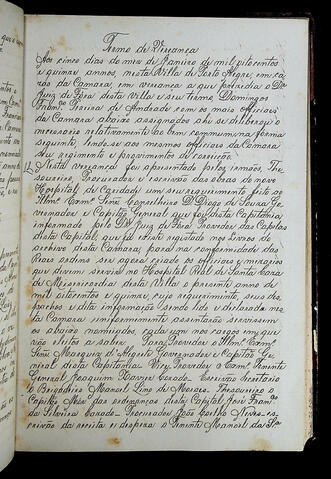 Termo de Vereança
Aos cinco dias do mez de Janeiro de mil oitocentos
e quinze annos, nesta Villa de Porto Alegre, em ca-
za da Camara, em vereança a que prezedio o Dr.
Juiz de Fora desta Villa e seu termo, Domingos
Fran.co Pereira de Andrade com os mais officiaes
da Camara abaixo assignados ahi se deliberou o
necessario relativamente ao bem commum na forma
seguinte, lendo-se aos mesmos officiaes da Camara
seu regimento e provimentos de correição.
Nesta vereança foi apresentado pelos irmãos, The-
soureiro, Procurador e escrivão das obras do novo
Hospital de Caridade um seu requerimento feito ao
Illmo. Exmo. Senr. Conselheiro D. Diogo de Souza Go-
vernador e Capitão General que foi desta Capitania
informado pelo Dr. Juiz de Fora, Provedor das Capellas
desta Capital, que foi
archivo desta Camara, para na conformidade das
Reaes ordens ser agora criado os officiaes e mezarios
que devem servir no Hospital Real de Santa Caza
de Mizericordia desta Villa o prezente anno de
mil oitocentos e quinze, cujo requerimento, seus des-
pachos e dita informação sendo lido e declarado nes-
ta Camara uniformemente assentarão servissem
os abaixo nomeados, cada um nos cargos em que
vão eleitos a saber. Para Provedor o Illmo. Exmo.
Senr. Marquez d'Alegrete Governador e Capitão Ge-
neral desta Capitania. Vice Provedor o Exmo. Tenente
General Joaquim Xavier Curado. Escrivão Secretario
o Brigadeiro Manoel
Capitão Mor das ordenanças desta Capital José Fran.co
da Silveira Cazado. Procurador João Coelho Neves. es-
crivão da receita e despeza o Tenente Manoel da S.a